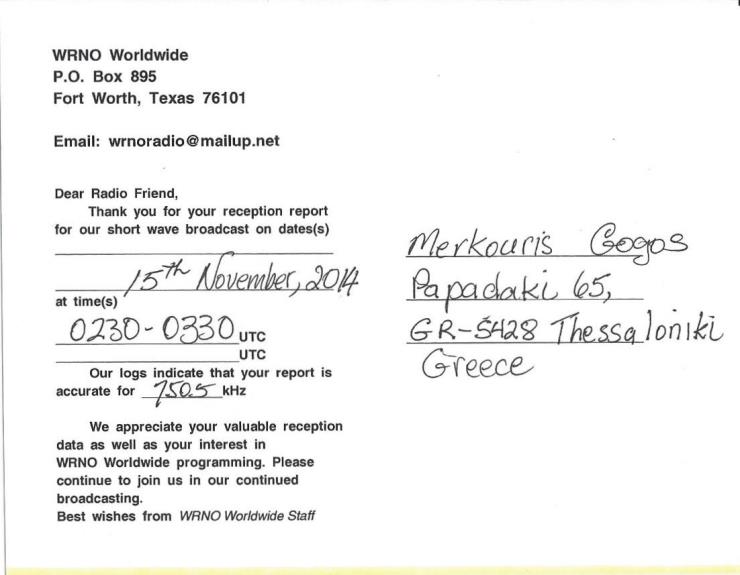 WRNO Worldwide
P.O. Box 895
Fort Worth, Texas 76101
Email: wrnoradio@mailup.net
Dear Radio Friend,
Thank you for your reception report
for our short wave broadcast on dates(s)
15th November, 2014
at time(s)
0230-0330 UTC
UTC
Our logs indicate that your report is
accurate for 7505 kHz
We appreciate your valuable reception
data as well as your interest in
WRNO Worldwide programming. Please
continue to join us in our continued
broadcasting.
Best wishes from WRNO Worldwide Staff
Merkouris Gogos
Papadaki 65,
GR-5428 Thessaloniki
Greece